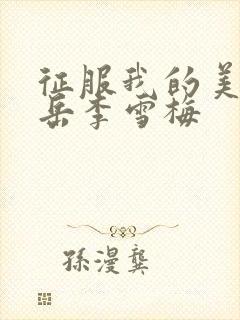 征服我的美
岳李雪梅
孫漫龔